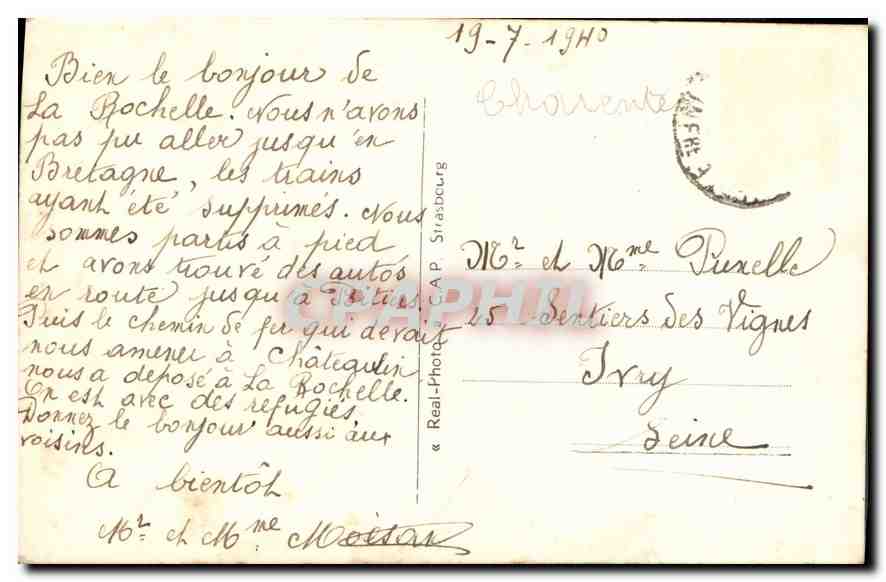 19-7-1940
Charente
Bien le bonjour de
La Rochelle. Nous n'avons
pas pu aller jusqu'en
Bretagne, les trains
ayant été supprimés. Nous
sommes partis à pied
et avons trouvé des autos
en route jusqu'à Poitiers
Puis le chemin de fer qui devait
nous amener à Châteaulin
nous a déposé à La Rochelle.
On est avec des réfugiés.
Donnez le bonjour aussi aux
voisins.
A bientôt
Mr et Mme Moisan
« Real-Photo » C.A.P. Strasbourg
CPAPHIL
Mr et Mme Punelle
25 Sentiers des Vignes
Ivry
Seine